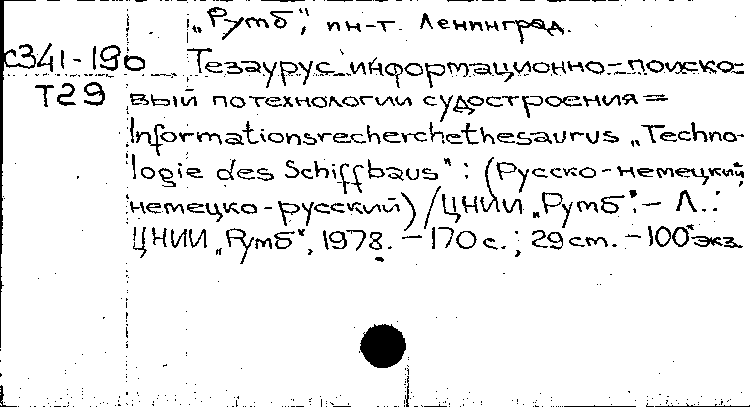 „Румб", ин-т. Ленинград.
с341-190 Тезаурус информационно-поиско-
Т29 вый по технологии судостроения =
Informationsrecherchethesaurus „Techno-
logie des Schiffbaus" : (Русско-немецкий,
немецко-русский) / ЦНИИ „Румб". - Л. :
ЦНИИ „Румб", 1978. - 170 с. ; 29 cm. - 100 экз.